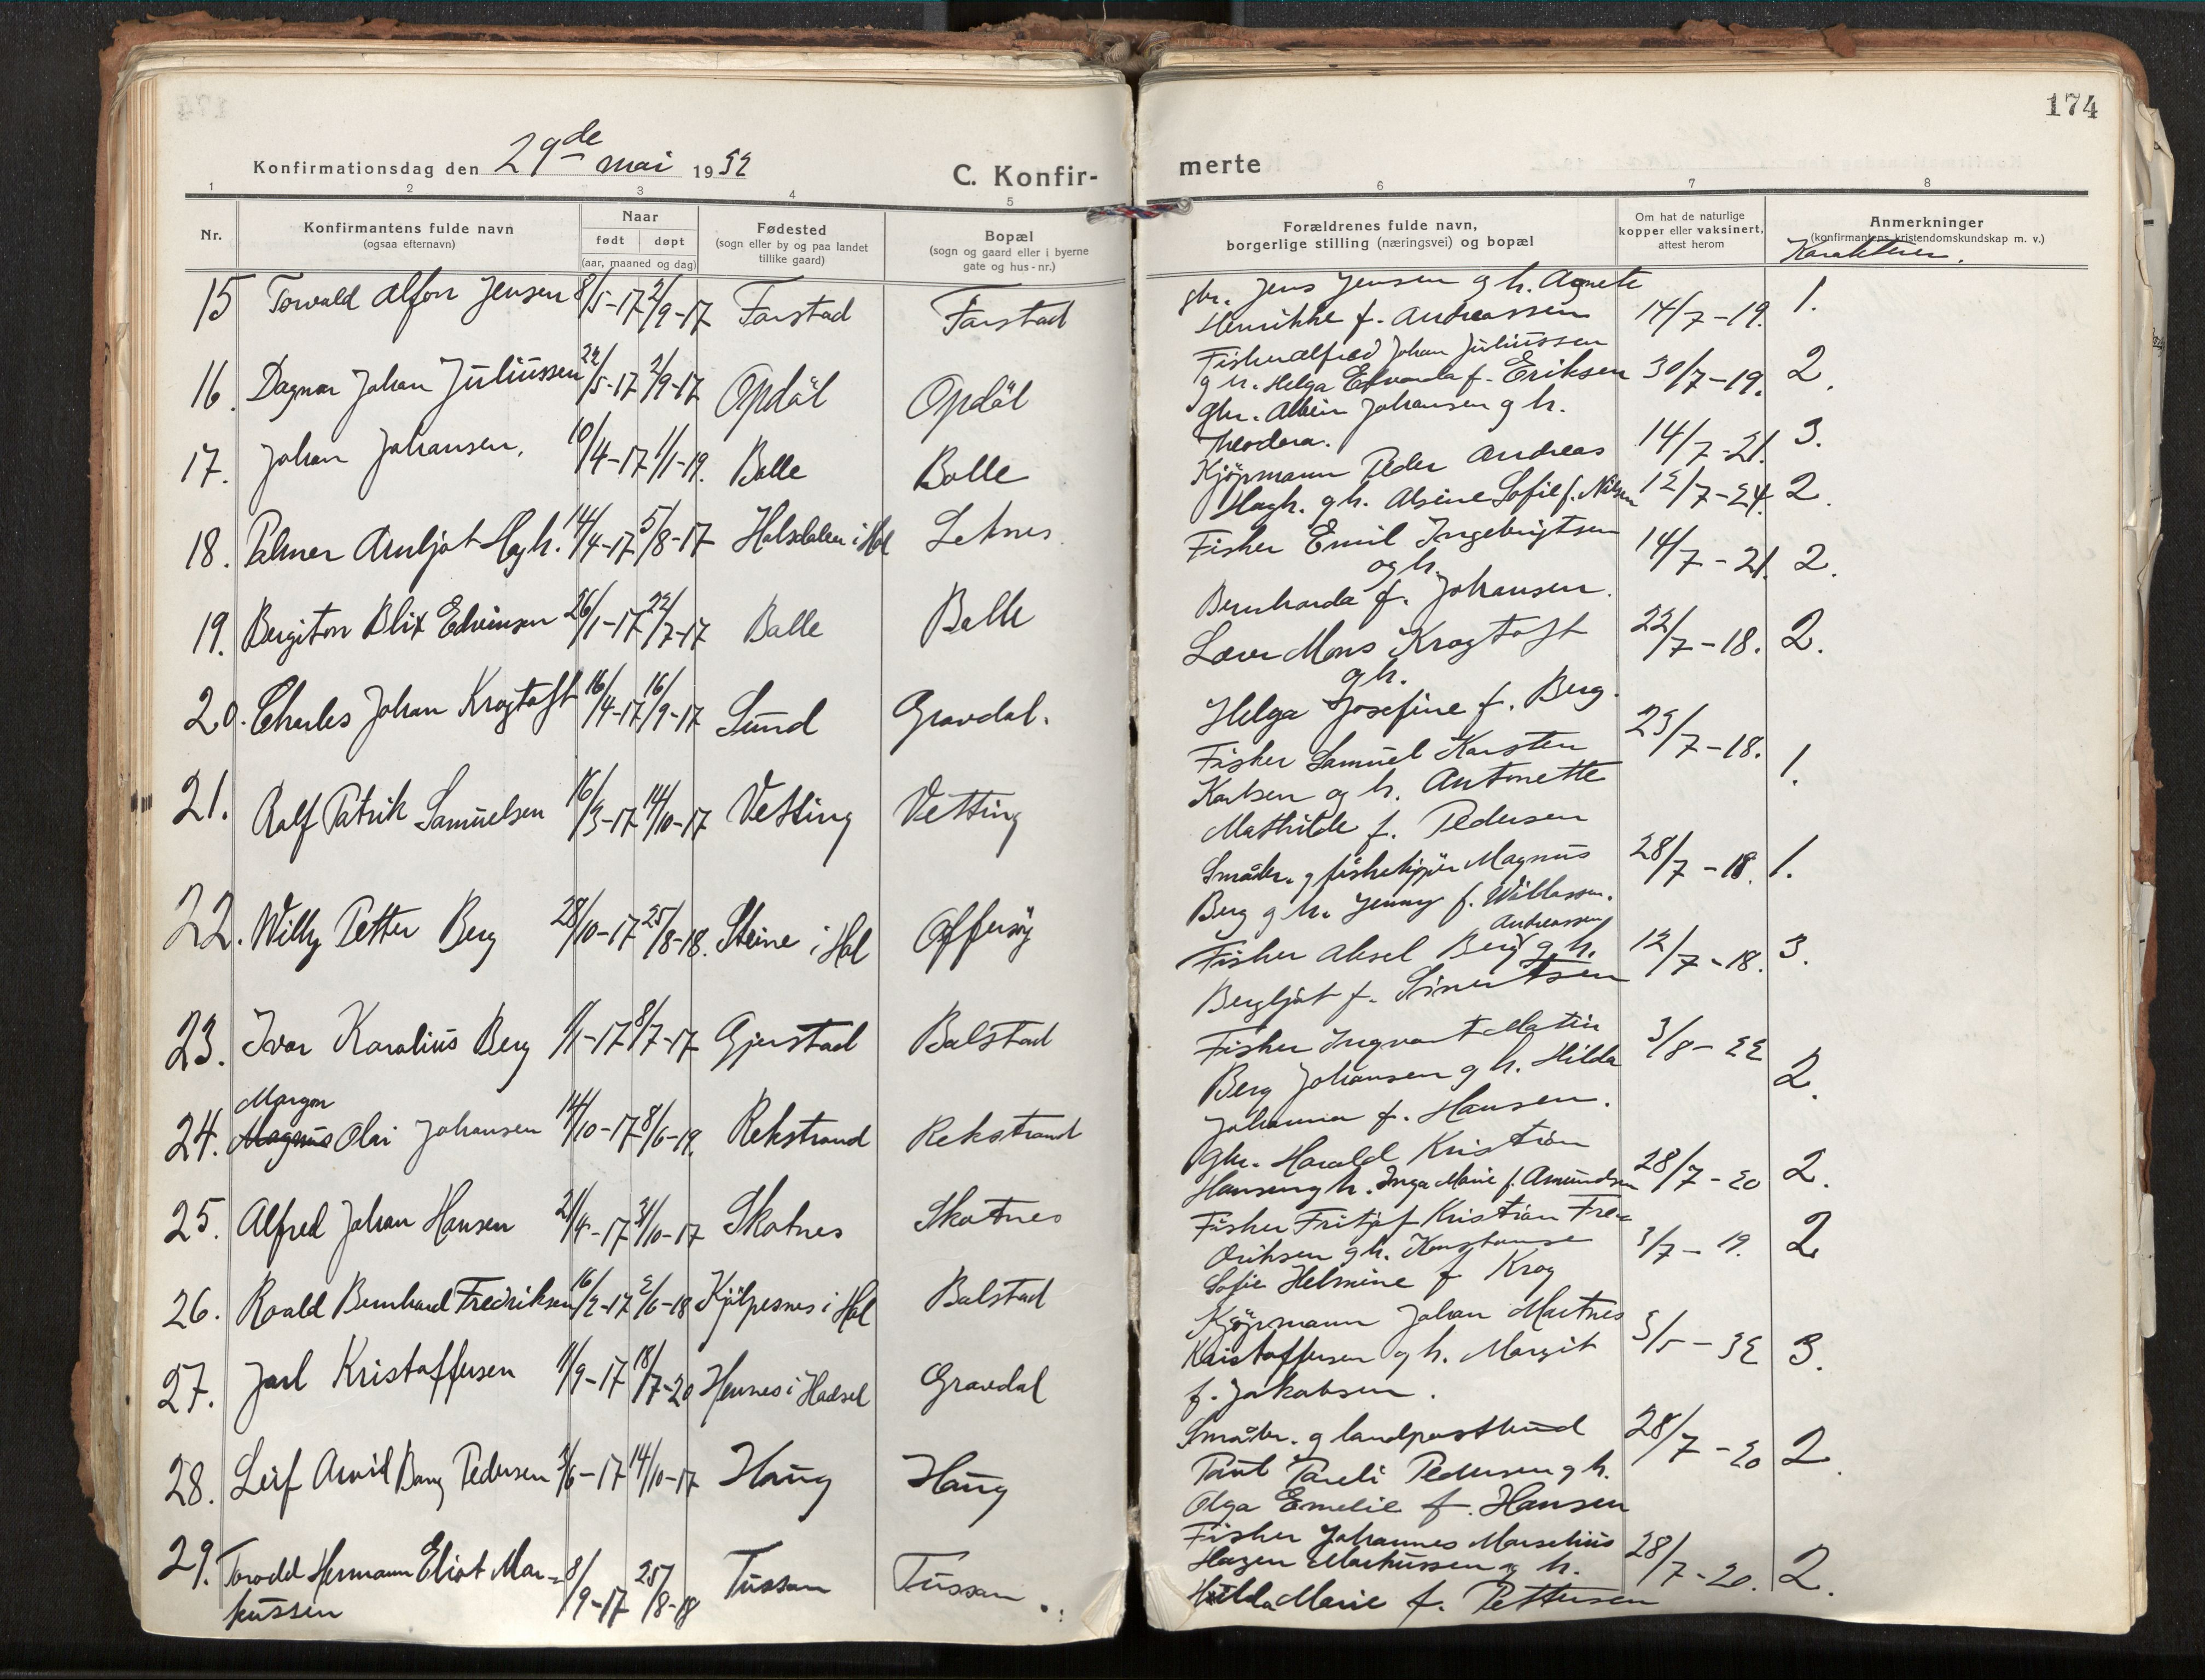 174
Konfirmationsdag den 29de mai 1932
C. Konfir-
merte
1 2 3 4 5 6 7 8
Nr.
Konfirmantens fulde navn
(ogsaa efternavn)
Naar
født døpt
(aar, maaned og dag)
Fødested
(sogn eller by og paa landet
tillike gaard)
Bopæl
(sogn og gaard eller i byerne
gate og hus-nr.)
Forældrenes fulde navn,
borgerlige stilling (næringsvei) og bopæl
Om hat de naturlige
kopper eller vaksinert,
attest herom
Anmerkninger
(konfirmantens kristendomskundskap m. v.)
Karakteren.
15 Torvald Alfon Jensen 8/5-17 2/9-17 Farstad Farstad
gbr. Jens Jensen g h. Agnete
Henrikke f. Andreassen 14/7-19. 1.
16. Dagmar Johan Juliussen 22/5-17 2/9-17 Opdöl Opdöl
Fisker Alfred Johan Juliussen
g h. Helga Edvarda f. Eriksen 30/7-19. 2.
17. Johan Johansen, 10/4-17 1/1-19. Bolle Bolle
gbr. Albin Johansen g h.
Theodora. 14/7-21. 3.
18. Palmer Arnljot Hagh. 14/4-17 5/8-17 Halsdalen i Hol Leknes
Kjöpmann Peder Andreas
Hagh. g h. Alsine Sofie f. Nilsen 12/7-24 2.
19. Bergiton Blix Edvinsen 26/1-17 22/7-17 Balle Balle
Fisker Emil Ingebrigtsen
og h.
Bernharda f. Johansen. 14/7-21. 2.
20. Charles Johan Krogtoft 16/4-17 16/9-17 Sund Gravdal.
Lærer Mons Krogtoft
g h.
Helga Josefine f. Berg. 22/7-18. 2.
21. Ralf Patrik Samuelsen 16/3-17 14/10-17 Vetting Vetting
Fisker Samuel Karsten
Karlsen og h. Antonette
Mathilde f. Pedersen 23/7-18. 1.
22. Willy Petter Berg 28/10-17 25/8-18. Steine i Hol Offersöy
Småbr. g fiskekjöper Magnus
Berg g h. Jenny f. Willassen. 28/7-18. 1.
23. Ivar Karolius Berg 1/1-17 8/7-17 Gjerstad Balstad
Andreassen
Fisker Aksel Berg g h.
Bergljot f. Sivertsen 12/7-18. 3.
Margon
24. Magnus Olai Johansen 14/10-17 8/6-19. Rekstrand Rekstrand
Fisker Ingvart Matin
Berg Johansen g h. Hilda
Johanna f. Hansen. 3/8-22 2.
25. Alfred Johan Hansen 21/4-17 31/10-17 Skotnes Skotnes
gbr. Harald Kristian
Hansen g h. Inga Marie f. Amundsen 28/7-20 2.
26. Roald Bernhard Fredriksen 16/2-17 2/6-18 Kjölpesnes i Hol Balstad
Fisker Fritjof Kristian Fre-
driksen g h. Konstanse
Sofie Helmine f Krog 3/7-19. 2
27. Jarl Kristoffersen 11/9-17 18/7-20 Hennes i Hadsel Gravdal
Kjöpmann Johan Martnes
Kristoffersen g h. Margit
f. Jakobsen. 3/5-32 3.
28. Leif Arvid Bang Pedersen 3/6-17 14/10-17 Haug Haug
Småbr. g landpostbud
Paul Pareli Pedersen g h.
Olga Emelie f. Hansen 28/7-20 2.
29. Torodd Hermann Eliot Mar-
kussen 8/9-17 25/8-18 Tussan Tussan.
Fisker Johannes Marselius
Hagen Markussen g h.
Hilda Marie f. Pettersen 28/7-20. 2.